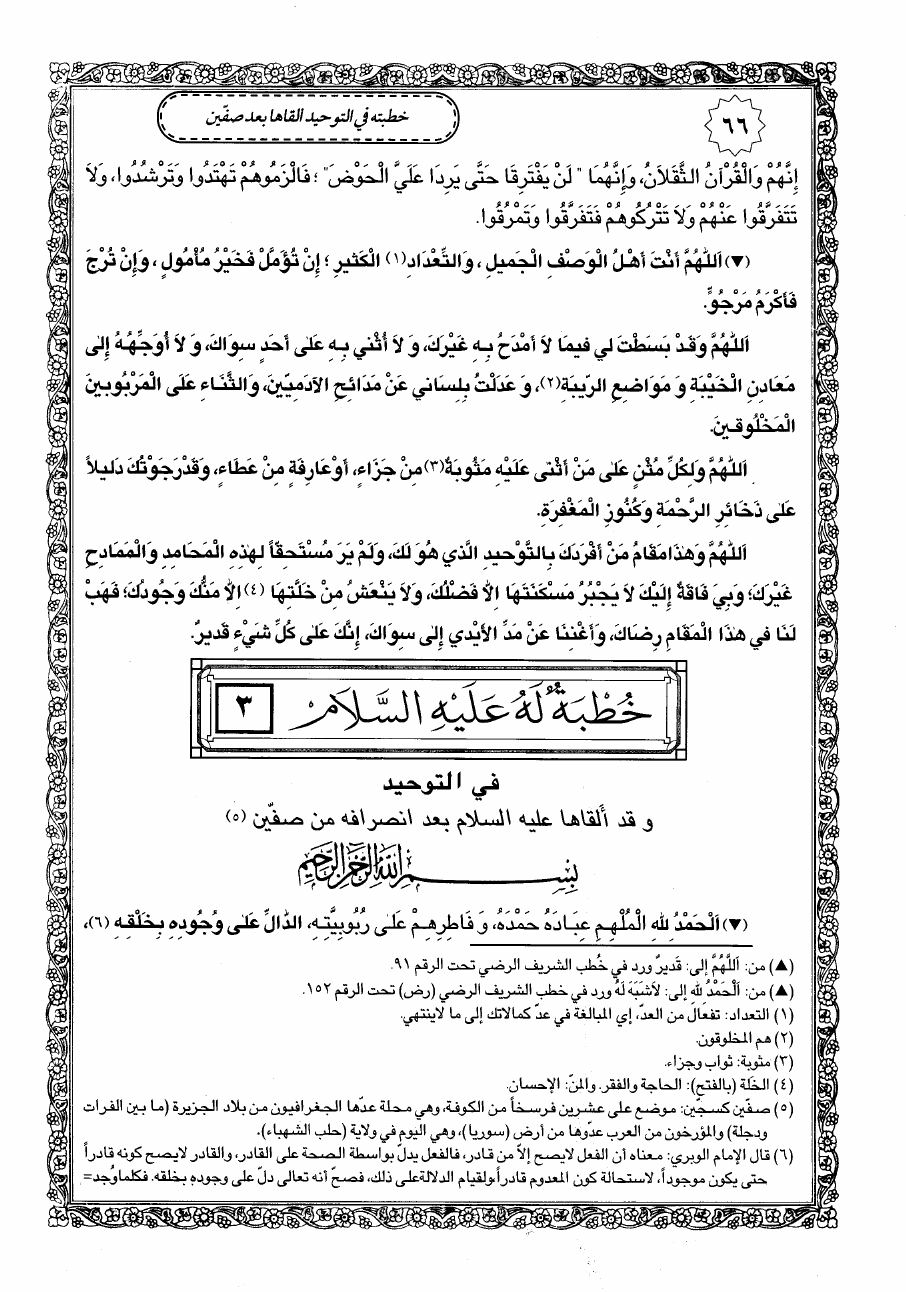 ٦٦
خطبته في التوحيد القاها بعد صفّين
إِنَّهُمْ وَالْقُرْآنُ الثَّقَلاَنُ، وَإِنَّهُمَا " لَنْ يَفْتَرِقَا حَتَّى يَرِدَا عَلَيَّ الْحَوْضَ" ؛ فَالْزَمُوهُمْ تَهْتَدُوا وَتَرْشُدُوا، وَلاَ
تَتَفَرَّقُوا عَنْهُمْ وَلاَ تَتْرُكُوهُمْ فَتَفَرَّقُوا وَتَمْرُقُوا.
(▼) اَللّهُمَّ أَنْتَ أَهْلُ الْوَصْفِ الْجَميلِ ، وَالتَّعْدَادِ(١) الْكَثيرِ ؛ إِنْ تُؤَمَّلْ فَخَيْرُ مَأْمُولٍ ، وَإِنْ تُرْجَ
فَأَكْرَمُ مَرْجُوٍّ.
اَللّهُمَّ وَقَدْ بَسَطْتَ لي فيمَا لاَ أَمْدَحُ بِهِ غَيْرَكَ، وَ لاَ أُثْني بِهِ عَلى أَحَدٍ سِوَاكَ، وَ لاَ أُوَجِّهُهُ إِلى
مَعَادِنِ الْخَيْبَةِ وَ مَوَاضِعِ الرّيبَةِ(٢)، وَ عَدَلْتُ بِلِسَاني عَنْ مَدَائِحِ الآدَمِيّينَ، وَالثَّنَاءِ عَلَى الْمَرْبُوبينَ
الْمَخْلُوقينَ.
اَللّهُمَّ وَلِكُلِّ مُثْنٍ عَلى مَنْ أَثْنى عَلَيْهِ مَثُوبَةٌ(٣)مِنْ جَزَاءٍ، أَوْعَارِفَةٌ مِنْ عَطَاءٍ، وَقَدْرَجَوْتُكَ دَليلاً
عَلى ذَخَائِرِ الرَّحْمَةِ وَكُنُوزِ الْمَغْفِرَةِ.
اَللّهُمَّ وَهذَامَقَامُ مَنْ أَفْرَدَكَ بِالتَّوْحيدِ الَّذي هُوَ لَكَ، وَلَمْ يَرَ مُسْتَحِقّاً لِهذِهِ الْمَحَامِدِ وَالْمَمَادِحِ
غَيْرَكَ؛ وَبِيَ فَاقَةٌ إِلَيْكَ لاَ يَجْبُرُ مَسْكَنَتَهَا إِلاَّ فَضْلُكَ، وَلاَ يَنْعَشُ مِنْ خَلَّتِهَا (٤)إِلاَّ مَنُّكَ وَجُودُكَ؛ فَهَبْ
لَنَا في هذَا الْمَقَامِ رِضَاكَ، وَأَغْنِنَا عَنْ مَدِّ الأَيْدي إِلى سِوَاكَ، إِنَّكَ عَلى كُلِّ شَيْءٍ قَديرٌ.
خُطْبَةٌ لَهُ عَلَيْهِ السَّلاَمُ ٣
في التوحيد
و قد ألقاها عليه السلام بعد انصرافه من صفّين (٥)
بِسْمِ اللهِ الرَّحْمٰنِ الرَّحِيمِ
(▼) اَلْحَمْدُ للهِ الْمُلْهِمِ عِبَادَهُ حَمْدَهُ، وَ فَاطِرِهِمْ عَلى رُبُوبِيَّتِهِ، الدَّالِّ عَلى وُجُودِهِ بِخَلْقِهِ (٦)،
(▲) من: اَللَّهُمَّ إلى: قَديرٌ ورد في خُطب الشريف الرضي تحت الرقم ٩١.
(▲) من: اَلْحَمْدُ للهِ إلى: لاَشَبَهَ لَهُ ورد في خطب الشريف الرضي (رض) تحت الرقم ١٥٢.
(١) التعداد: تفعال من العدّ، إي المبالغة في عدّ كمالاتك إلى ما لاينتهي.
(٢) هم المخلوقون.
(٣) مثوبة: ثواب وجزاء.
(٤) الخَلّة (بالفتح): الحاجة والفقر. والمنّ: الإحسان.
(٥) صفّين كسجّين: موضع على عشرين فرسخاً من الكوفة، وهي محلة عدّها الجغرافيون من بلاد الجزيرة (ما بين الفرات
ودجلة) والمؤرخون من العرب عدّوها من أرض (سوريا)، وهي اليوم في ولاية (حلب الشهباء).
(٦) قال الإمام الوبري: معناه أن الفعل لايصح إلاّ من قادر، فالفعل يدلّ بواسطة الصحة على القادر، والقادر لايصح كونه قادراً
حتى يكون موجوداً، لاستحالة كون المعدوم قادراًولقيام الدلالةعلى ذلك، فصحّ أنه تعالى دلّ على وجودهِ بخلقه. فكلماوُجد=